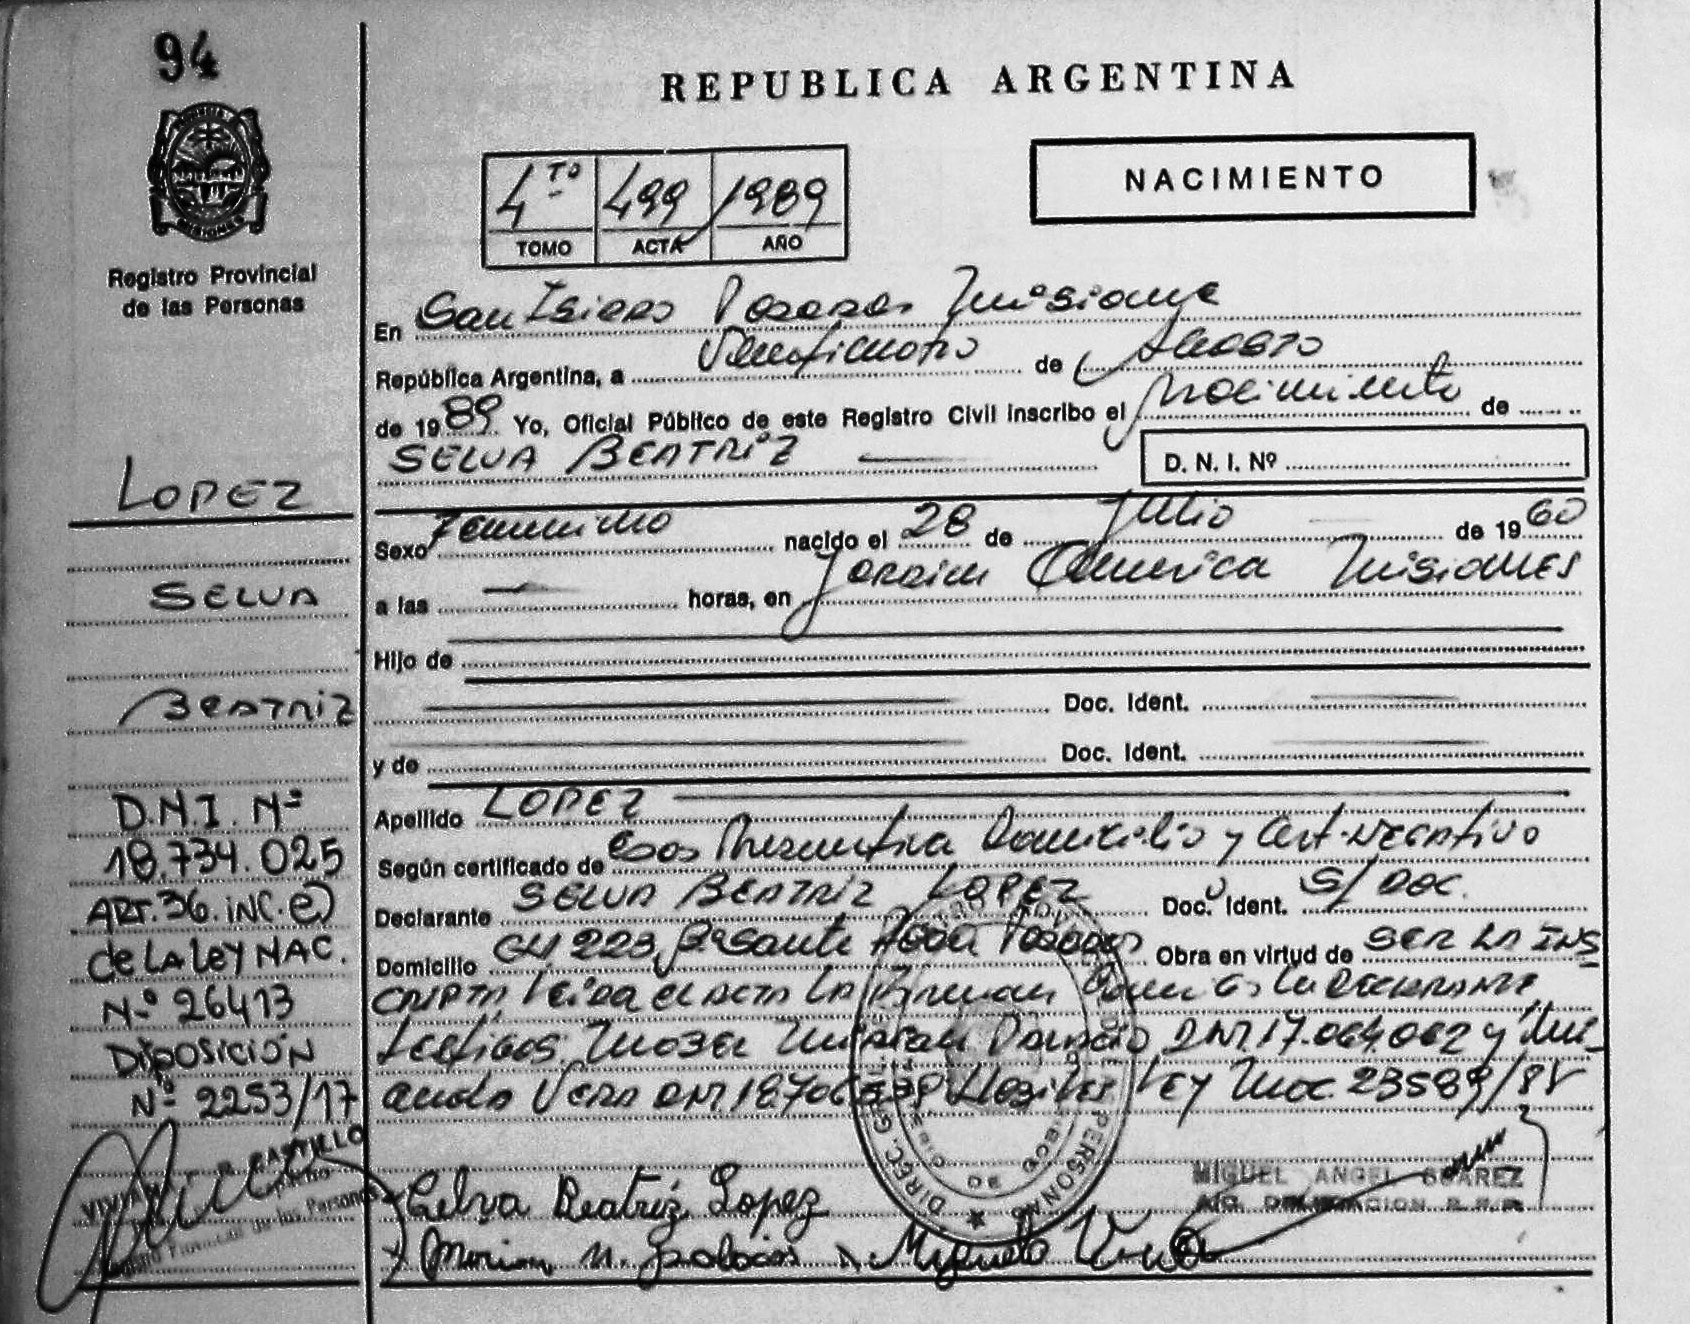 94
REPUBLICA ARGENTINA
NACIMIENTO
4to 499 1989
TOMO ACTA AÑO
Registro Provincial
de las Personas
En San Isidro Posadas Misiones
República Argentina, a Veinticuatro de Agosto
de 1989 Yo, Oficial Público de este Registro Civil inscribo el Nacimiento de
SELVA BEATRIZ
D. N. I. Nº
LOPEZ
Sexo Femenino nacido el 28 de Julio de 1960
a las horas, en Jardin America Misiones
SELVA
Hijo de
BEATRIZ
Doc. Ident.
y de Doc. Ident.
D.N.I. Nº
18.734.025
ART. 36. inc. e)
de LA Ley NAC.
Nº 26413
DiPOSICIÓN
Nº 2253/17
Apellido LOPEZ
Según certificado de Domicilio y Cert. NEGATIVO
Declarante SELVA BEATRIZ LOPEZ Doc. Ident. S/ DOC.
Domicilio CH 223 Posadas Obra en virtud de SER LA INS
CRIPTA leida el ACTA LA Firman LA DECLARANTE
testigos Miriam DNI 17.064.062 y
Vera DNI LEY 23589/88
MIGUEL ANGEL SUAREZ
CASTILLO
de las Personas
Selva Beatriz Lopez
Miriam N.
DIREC. PERSONAS